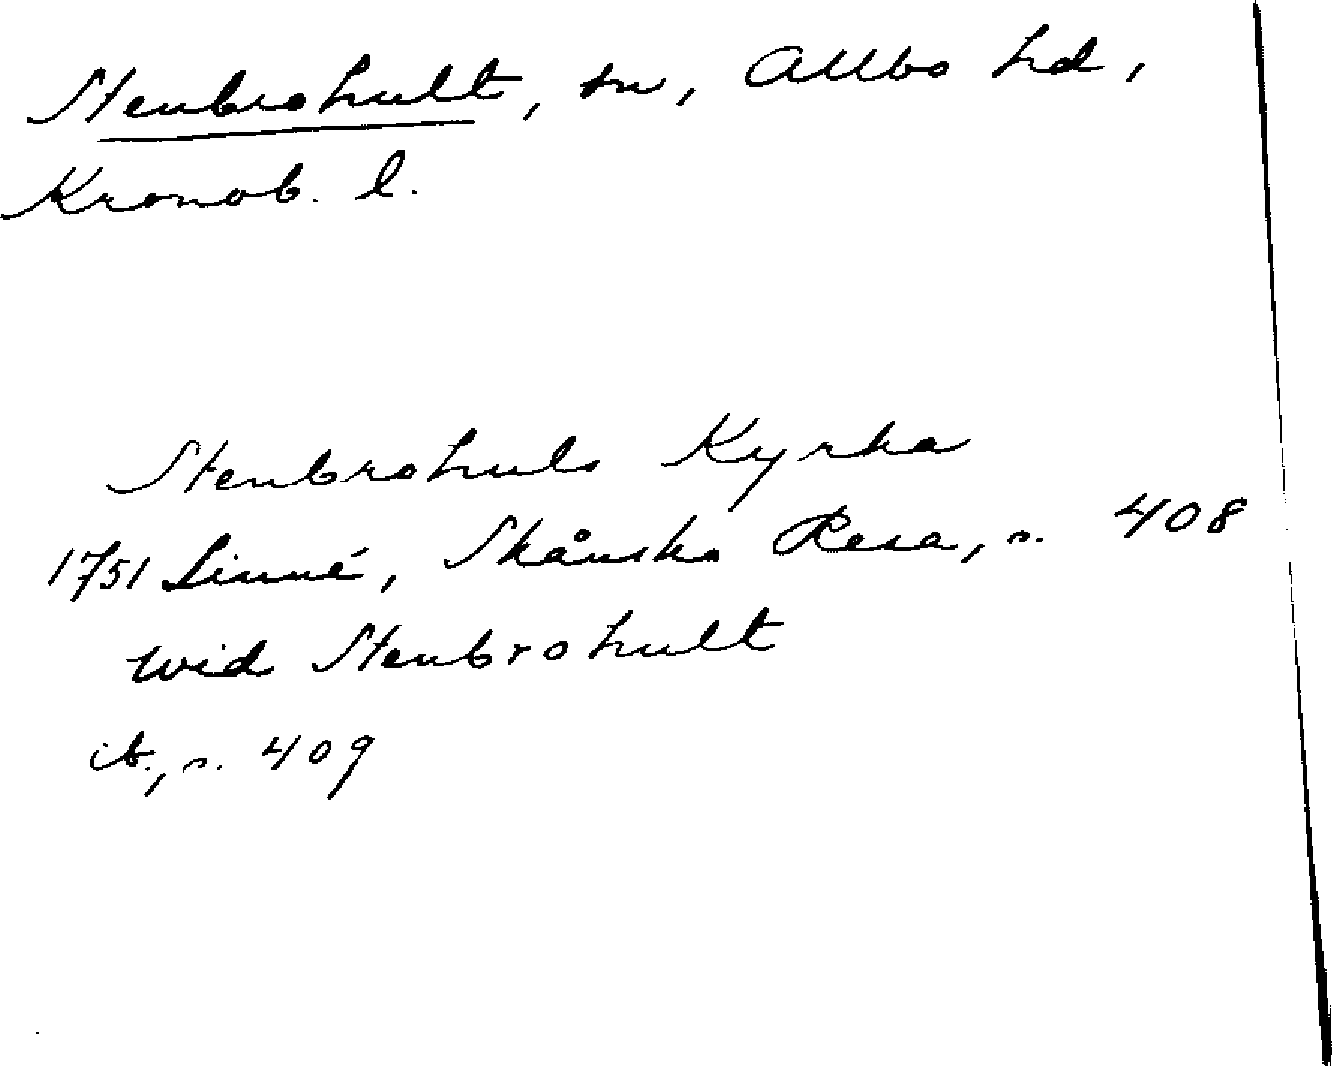 Stenbrohult, sn, Allbo hd,
Kronob. l.
Stenbrohuls Kyrka
1751 Linné, Skånska Resa, s. 408
wid Stenbrohult
ib., s. 409